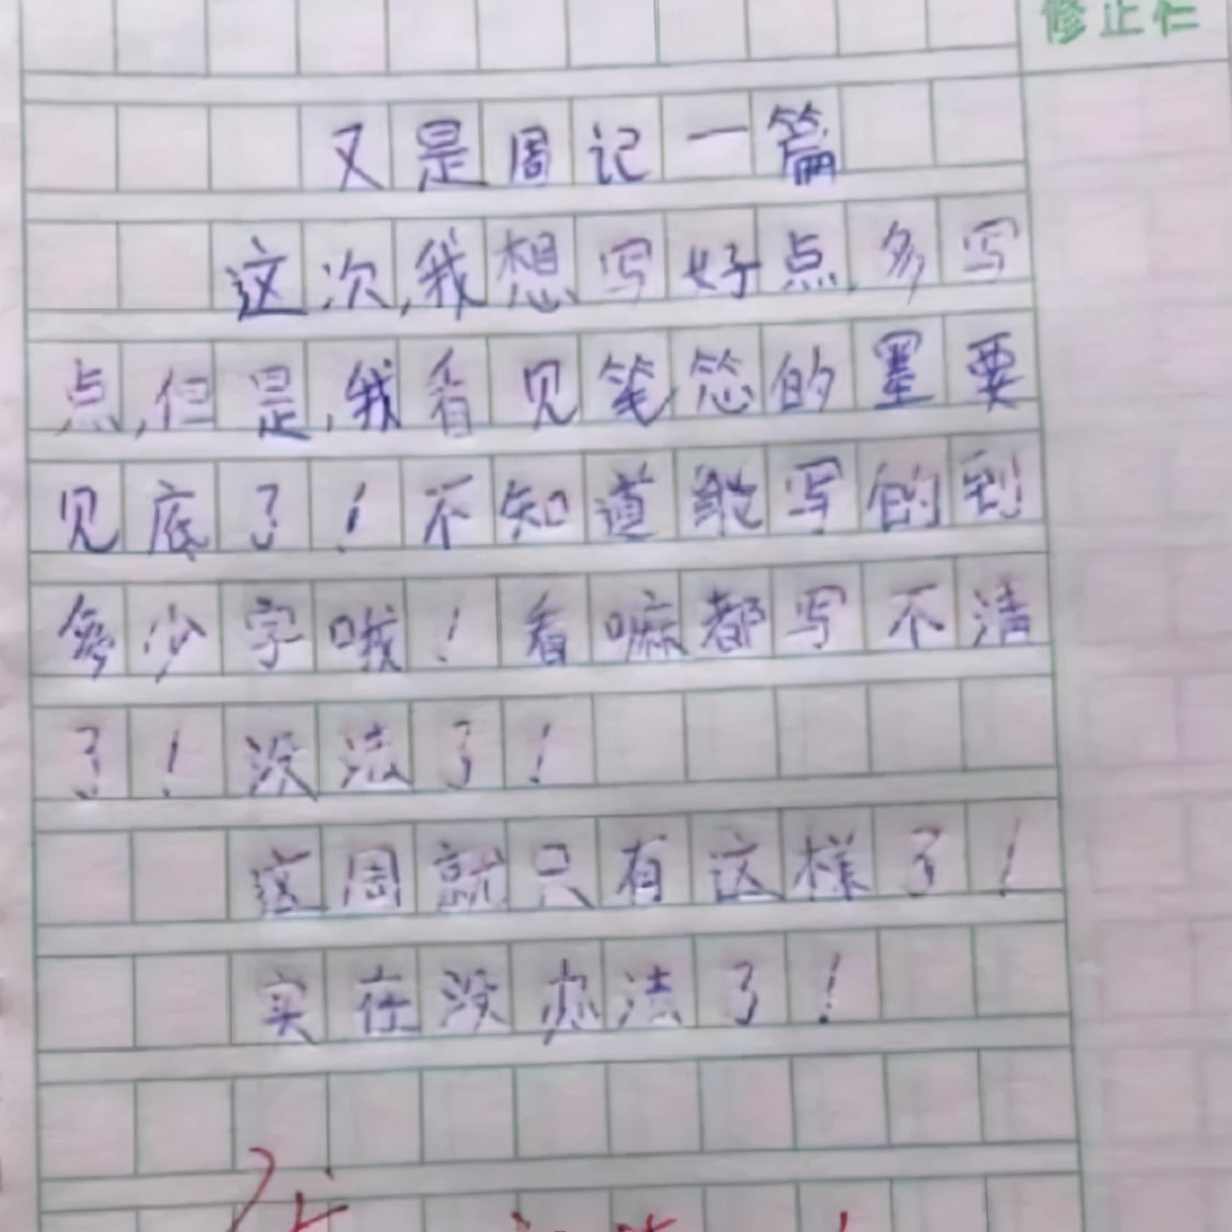 修正栏
又是周记一篇
这次,我想写好点,多写
点,但是,我看见笔芯的墨要
见底了!不知道能写的到
多少字哦!看嘛都写不清
了!没法了!
这周就只有这样了!
实在没办法了!